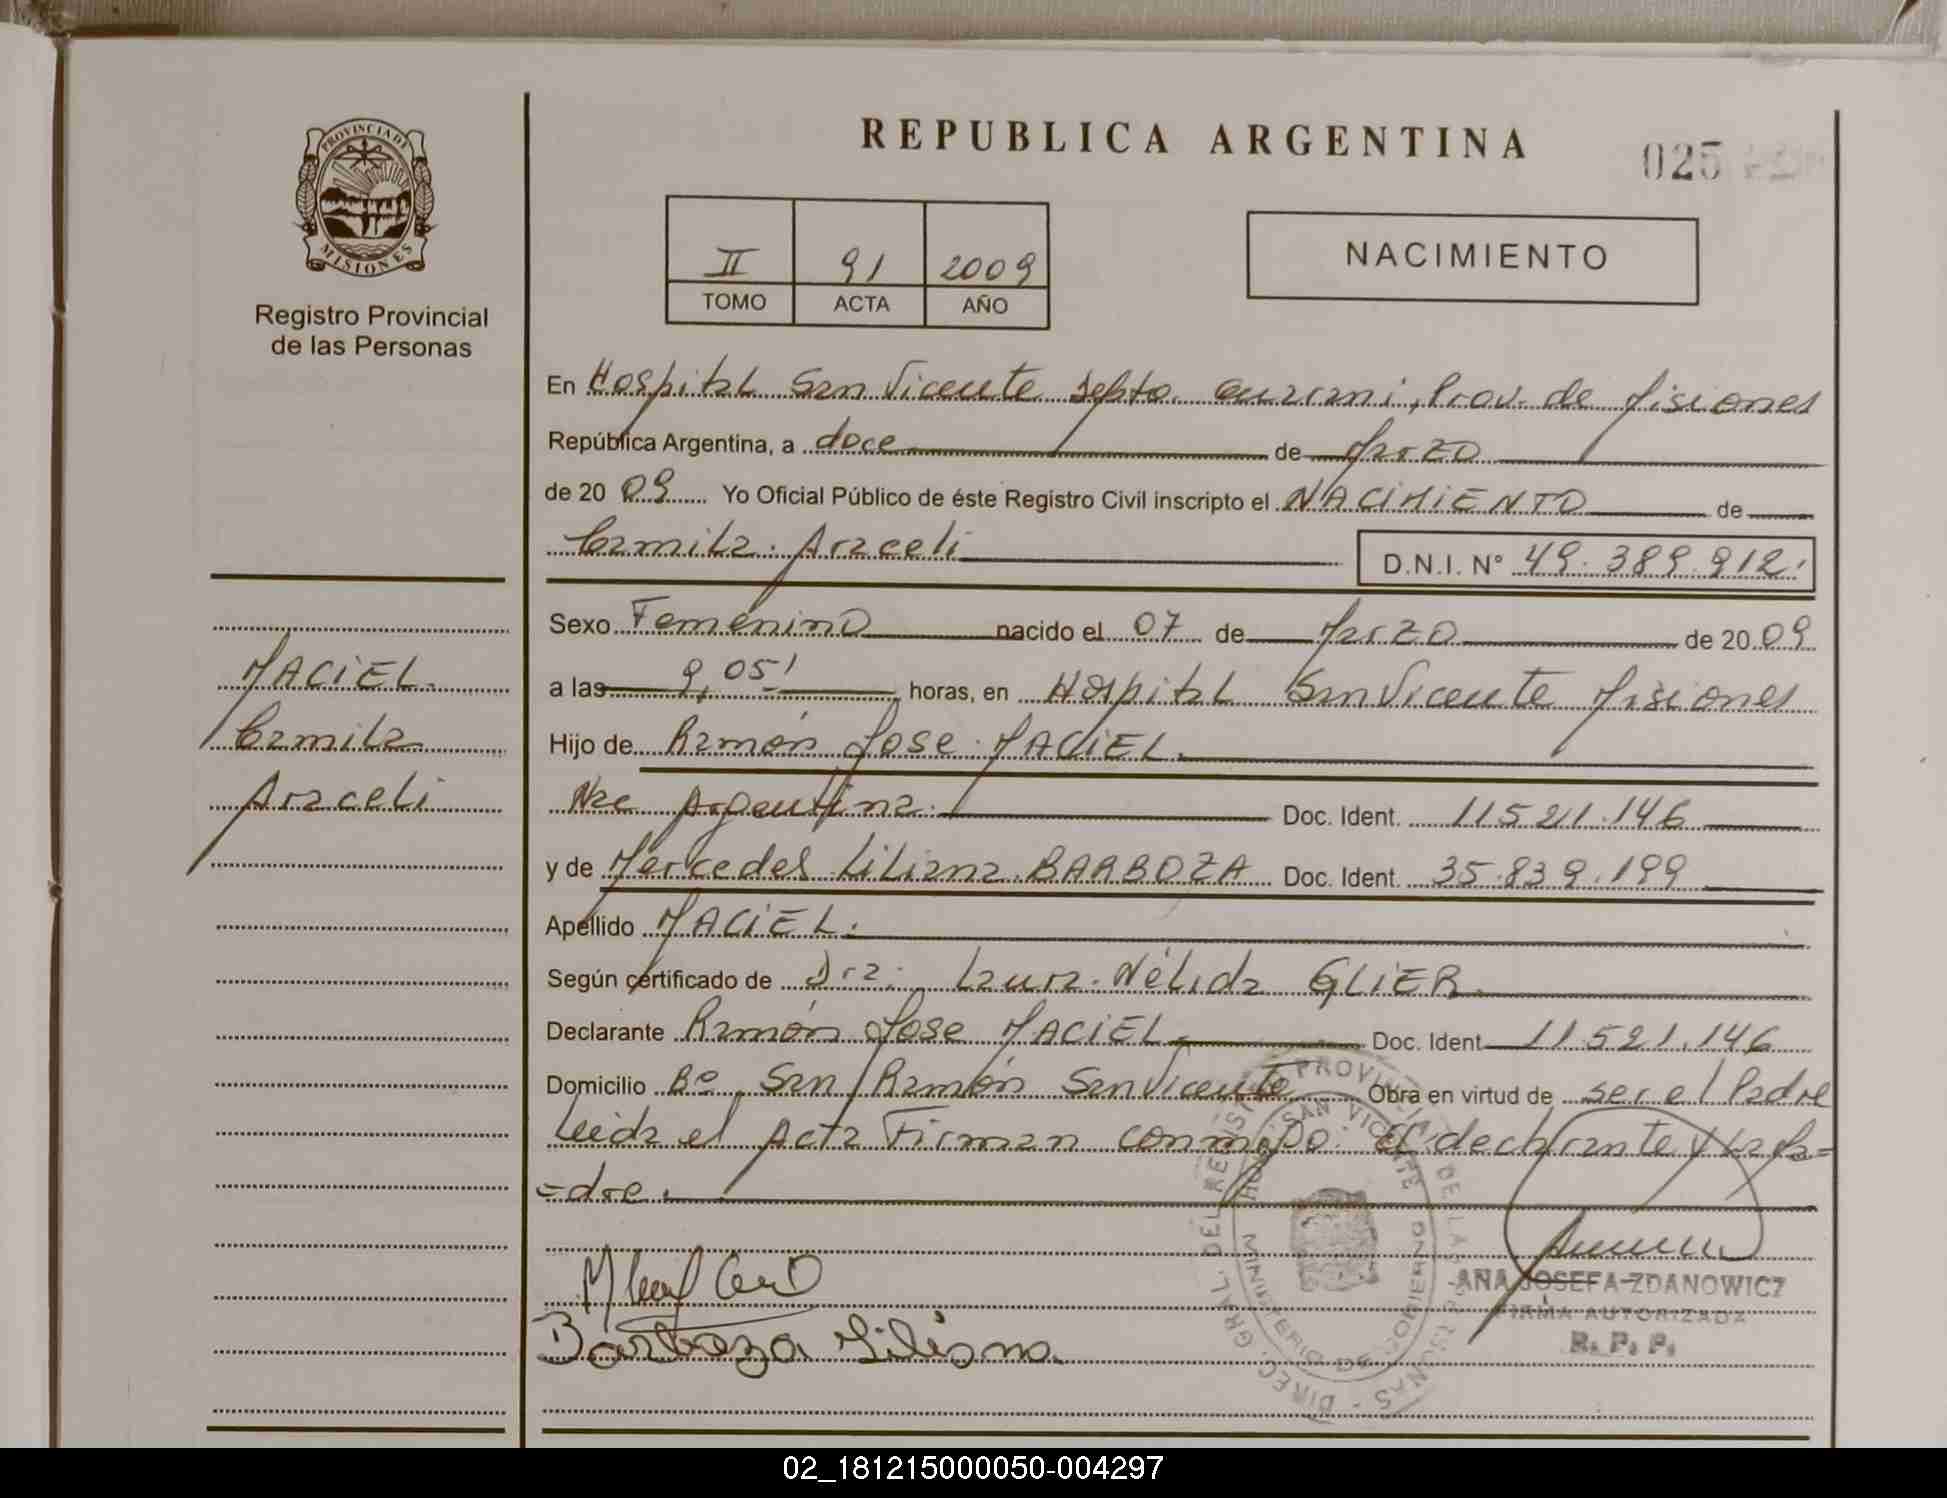 REPUBLICA ARGENTINA
025
PROVINCIA DE
MISIONES
Registro Provincial
de las Personas
II 91 2009
TOMO ACTA AÑO
NACIMIENTO
En Hospital San Vicente Depto. Guarani, Prov. de Misiones
República Argentina, a doce de Marzo
de 2009 Yo Oficial Público de éste Registro Civil inscripto el NACIMIENTO de
Camila Araceli D.N.I. N° 49.389.912.
Sexo Femenino nacido el 07 de Marzo de 2009
a las 9,05' horas, en Hospital San Vicente Misiones
Hijo de Ramón Jose MACIEL
Nac Argentina. Doc. Ident. 11521.146
y de Mercedes Liliana BARBOZA Doc. Ident. 35.839.199
Apellido MACIEL.
Según certificado de Dra. Laura Nélida GLIER
Declarante Ramón Jose MACIEL Doc. Ident 11521.146
Domicilio Bº San Ramón San Vicente Obra en virtud de ser el Padre
Leida el Acta Firman conmigo El declarante y la Ma=
=dre.
MACIEL
Camila
Araceli
Barboza Liliana
ANA JOSEFA ZDANOWICZ
FIRMA AUTORIZADA
R. P. P.
DIREC. GRAL. DEL REGISTRO PROVINCIAL DE LAS PERSONAS
HOSP. SAN VICENTE
MINISTERIO DE GOBIERNO
02_181215000050-004297